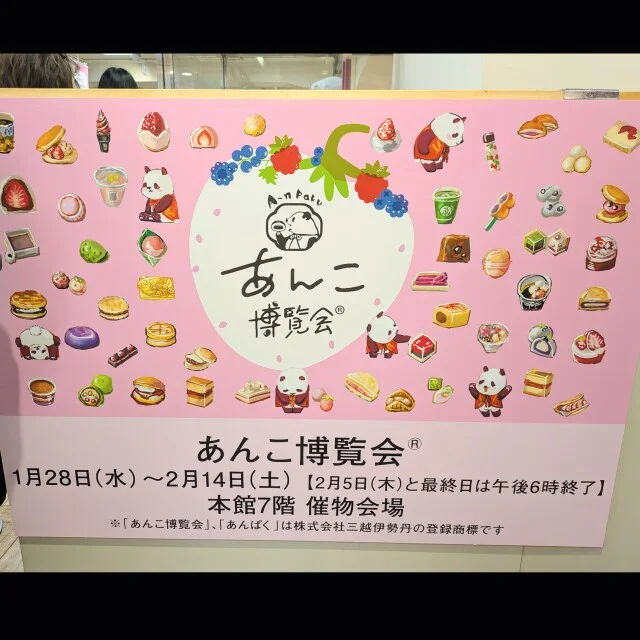 A-n Paku
あんこ
博覧会®
あんこ博覧会®
1月28日(水)~2月14日(土)【2月5日(木)と最終日は午後6時終了】
本館7階 催物会場
※「あんこ博覧会」、「あんぱく」は株式会社三越伊勢丹の登録商標です